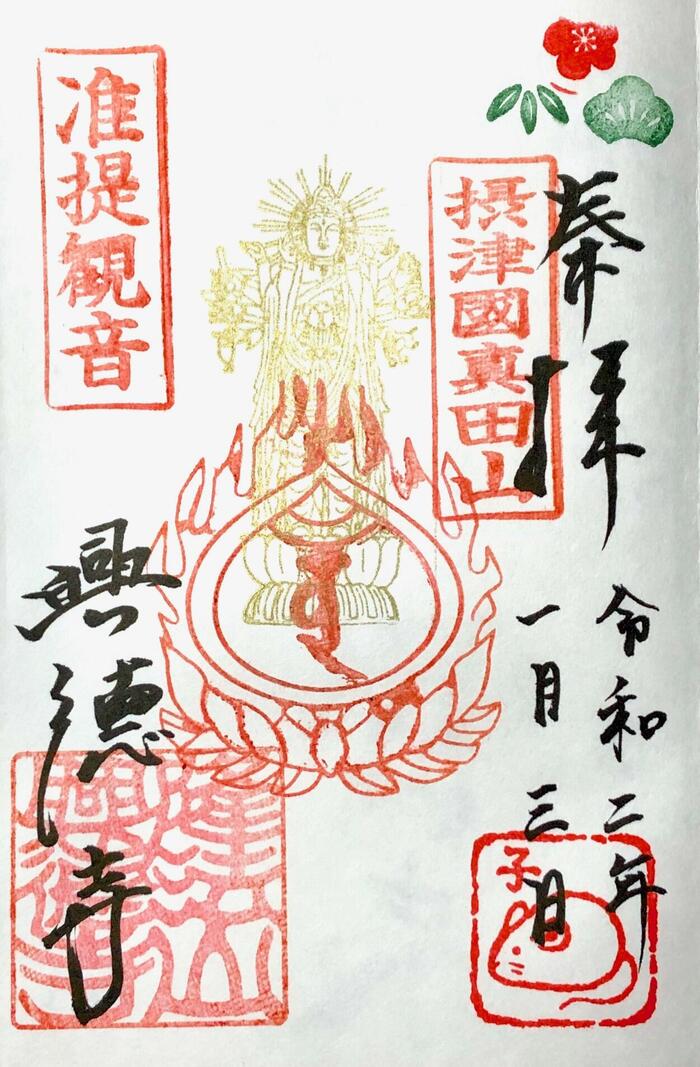 奉拝
令和二年
一月三日
摂津國真田山
准提観音
興德寺
子